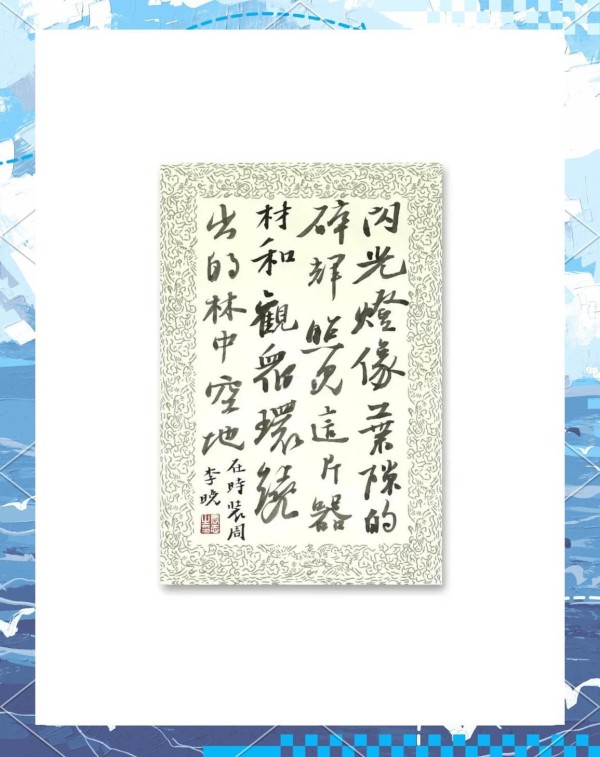 閃光燈像葉隙的
碎輝照見這片器
材和觀眾環繞
出的林中空地
在時裝周
李晚